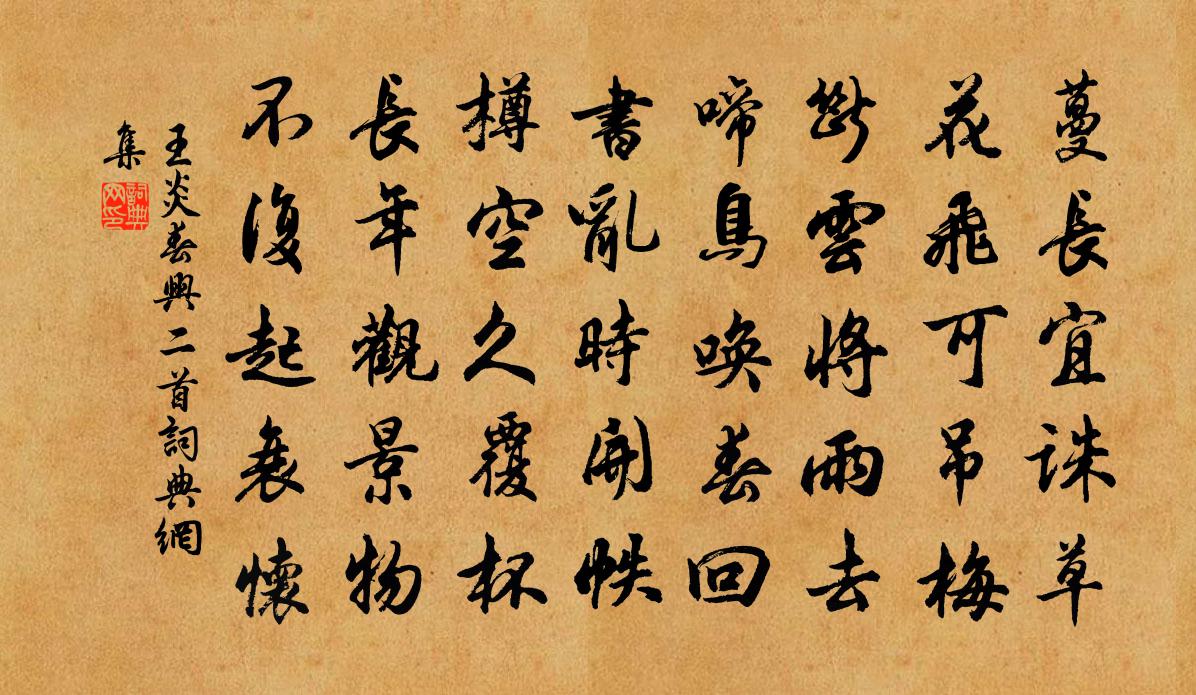 蔓長宜誅草
花飛可吊梅
斷雲將雨去
啼鳥喚春回
書亂時開帙
樽空久覆杯
長年觀景物
不復起衰懷
王炎春興二首詞典網
集
詞典
网印